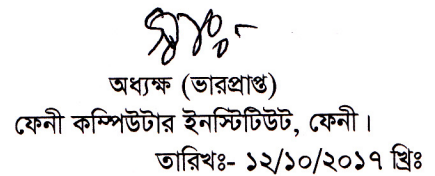 অধ্যক্ষ (ভারপ্রাপ্ত)
ফেনী কম্পিউটার ইনস্টিটিউট, ফেনী।
তারিখঃ- ১২/১০/২০১৭ খ্রিঃ